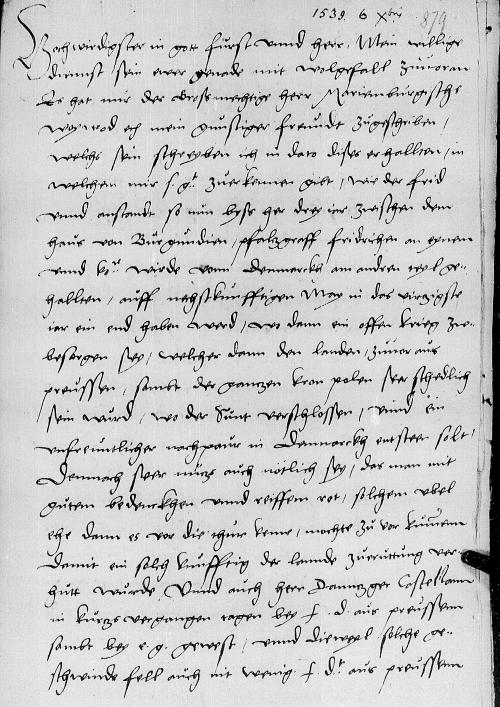 1539. 6 Xbris
879
Hochwirdigster in gott furst vnnd herr, Mein willige
dienst sein ewer genade mit wolgefall zuuoran
Es hat mir der Grosmechtige herr Marienburgischs
woywod ein gunstiger freundt zugeschriben,
welchs sein schreyben ich in dato dises erhallten, in
welchem mir s. gt. zuerkennen gibt, wie der frid
vnnd anstandt so nun byss her drey jar zwischen dem
haus von Burgundien, pfaltzgraff fridrichen an eynem
vnnd kor wirde vonn Dennmarckh am andren teyl ge-
hallten, auff nechstkunfftigen May in das virtzigste
iar ein end haben werd, wo dann ein offen krieg zw-
besorgen sey, welcher dann den landen, zuuor aus
preussen, sambt der gantzen kron polen seer schedlich
sein wurd, wo der Sunt verschlossen, vnnd ein
vnfreuntlicher nachpaur in Dennmarckh entsteen solt,
Demnach seer nutz auch nötlich sey, das man mit
gutem bedenckhen vnnd reiffem rot, solchem vbel
ehe dann es vor die thur keme, mochte zu vor kumen
damit ein solch kunfftig der lannde zuruttung ver-
hutt wurde. Vnnd auch herr Dantzger Castellann
in kurtz vergangen tagen bey f. d. aus preussenn
sambt bey e. g. gewest, vnnd dieweyl solche ge-
schwinde fell auch nit wenig f. dt. aus preussenn